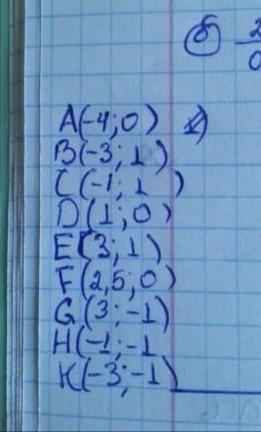 б) 2
0
A(-4;0)
B(-3;1)
C(-1;1)
D(1;0)
E(3;1)
F(2,5;0)
G(3;-1)
H(-1;-1
K(-3;-1)